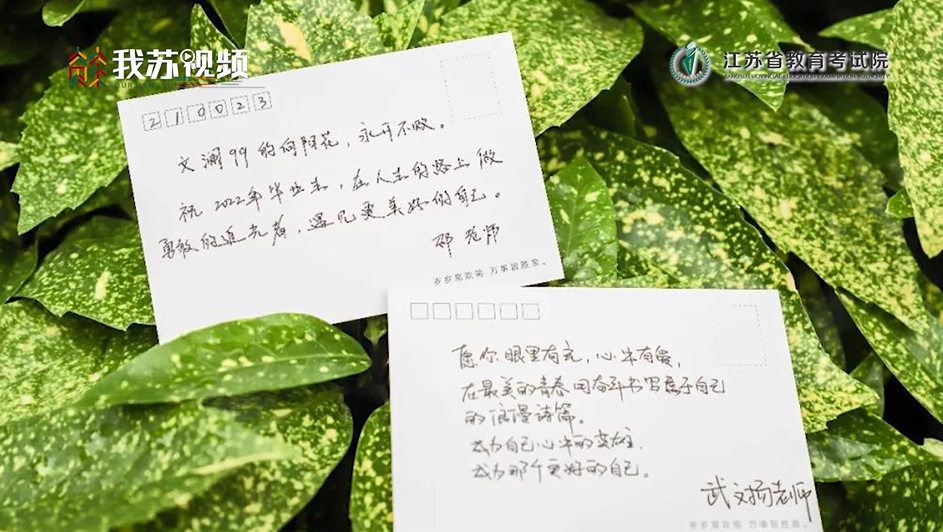 我苏视频
江苏省教育考试院
JIANGSU PROVINCIAL EDUCATION EXAMINATION AUTHORITY
210023
文澜99的向阳花，永开不败。
祝2022年毕业生，在人生的路上做
勇敢的追光者，遇见更美好的自己。
邵老师
岁岁常欢愉 万事皆胜意。
愿你眼里有光，心中有爱，
在最美的青春用奋斗书写属于自己
的浪漫诗篇。
成为自己心中的英雄，
成为那个更好的自己。
武文扬老师
岁岁常欢愉 万事皆胜意。